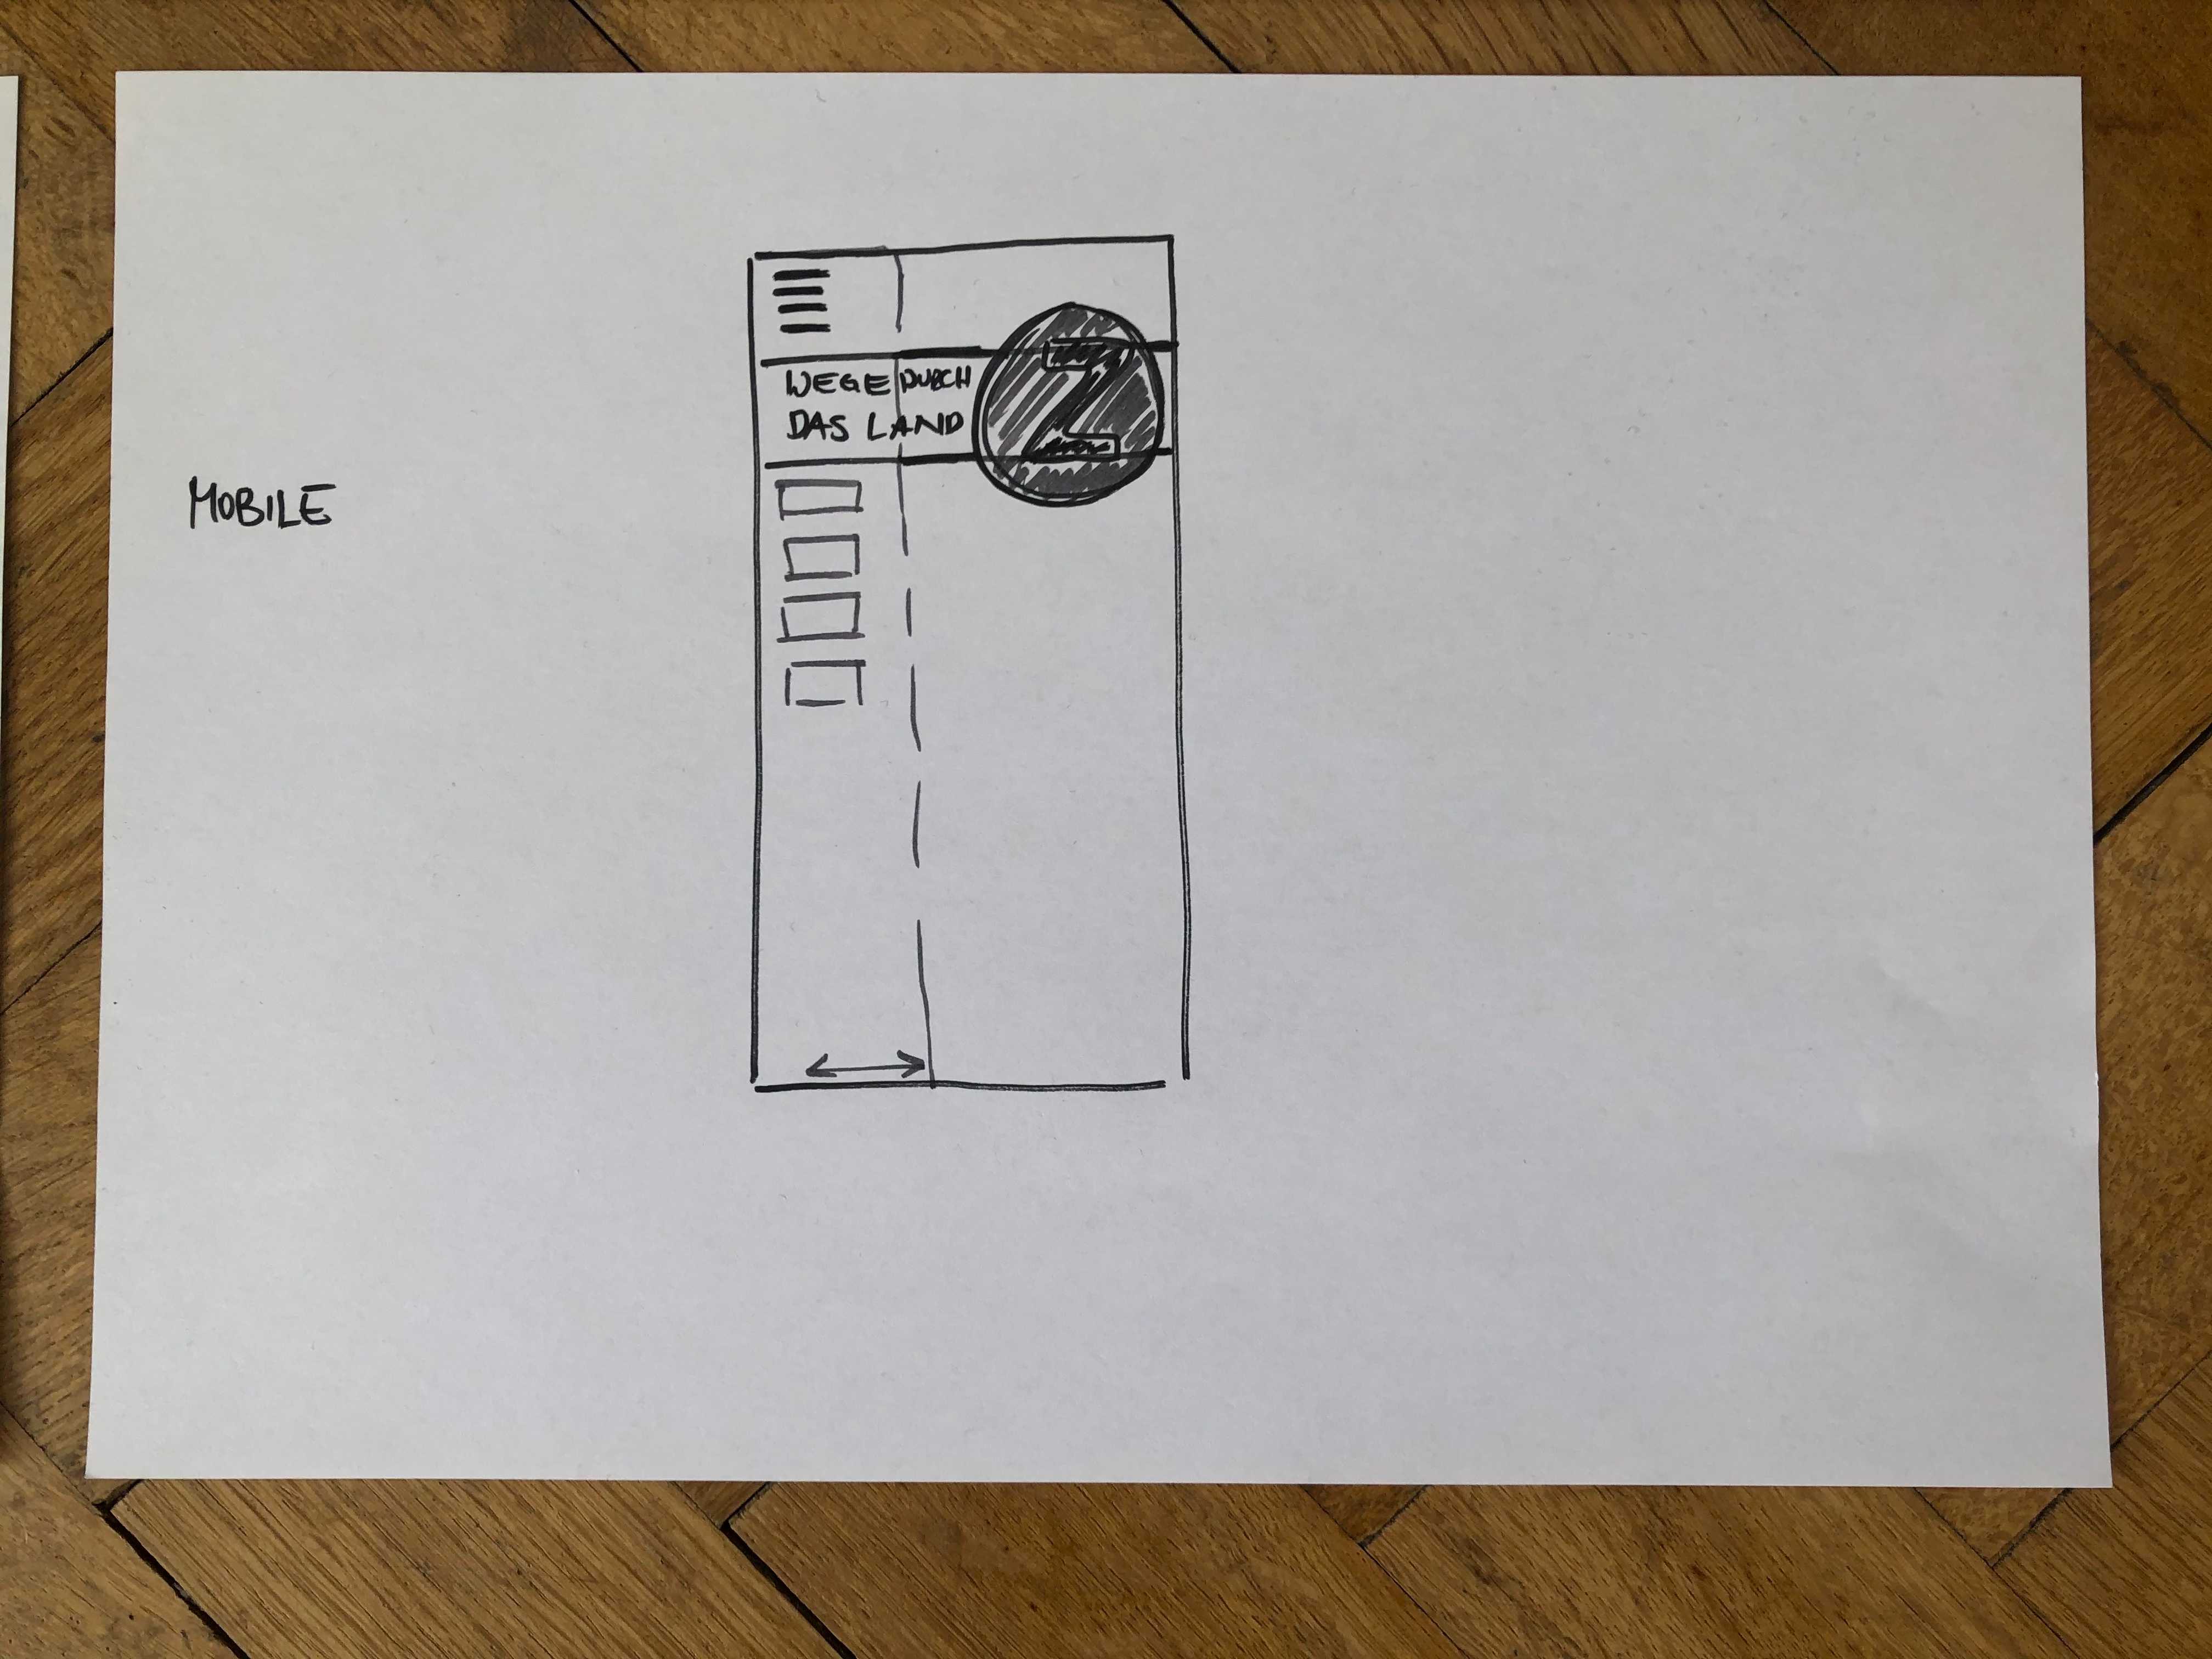 MOBILE
WEGE DURCH
DAS LAND
Z